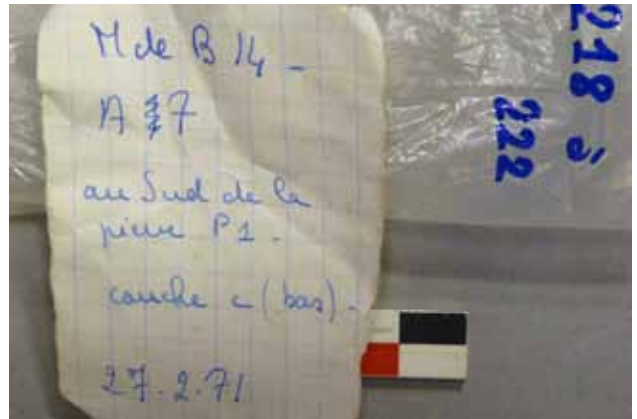 M de B 14 -
A 7
au Sud de la
pierre P1.
couche c (bas).
27.2.71
218 à
222